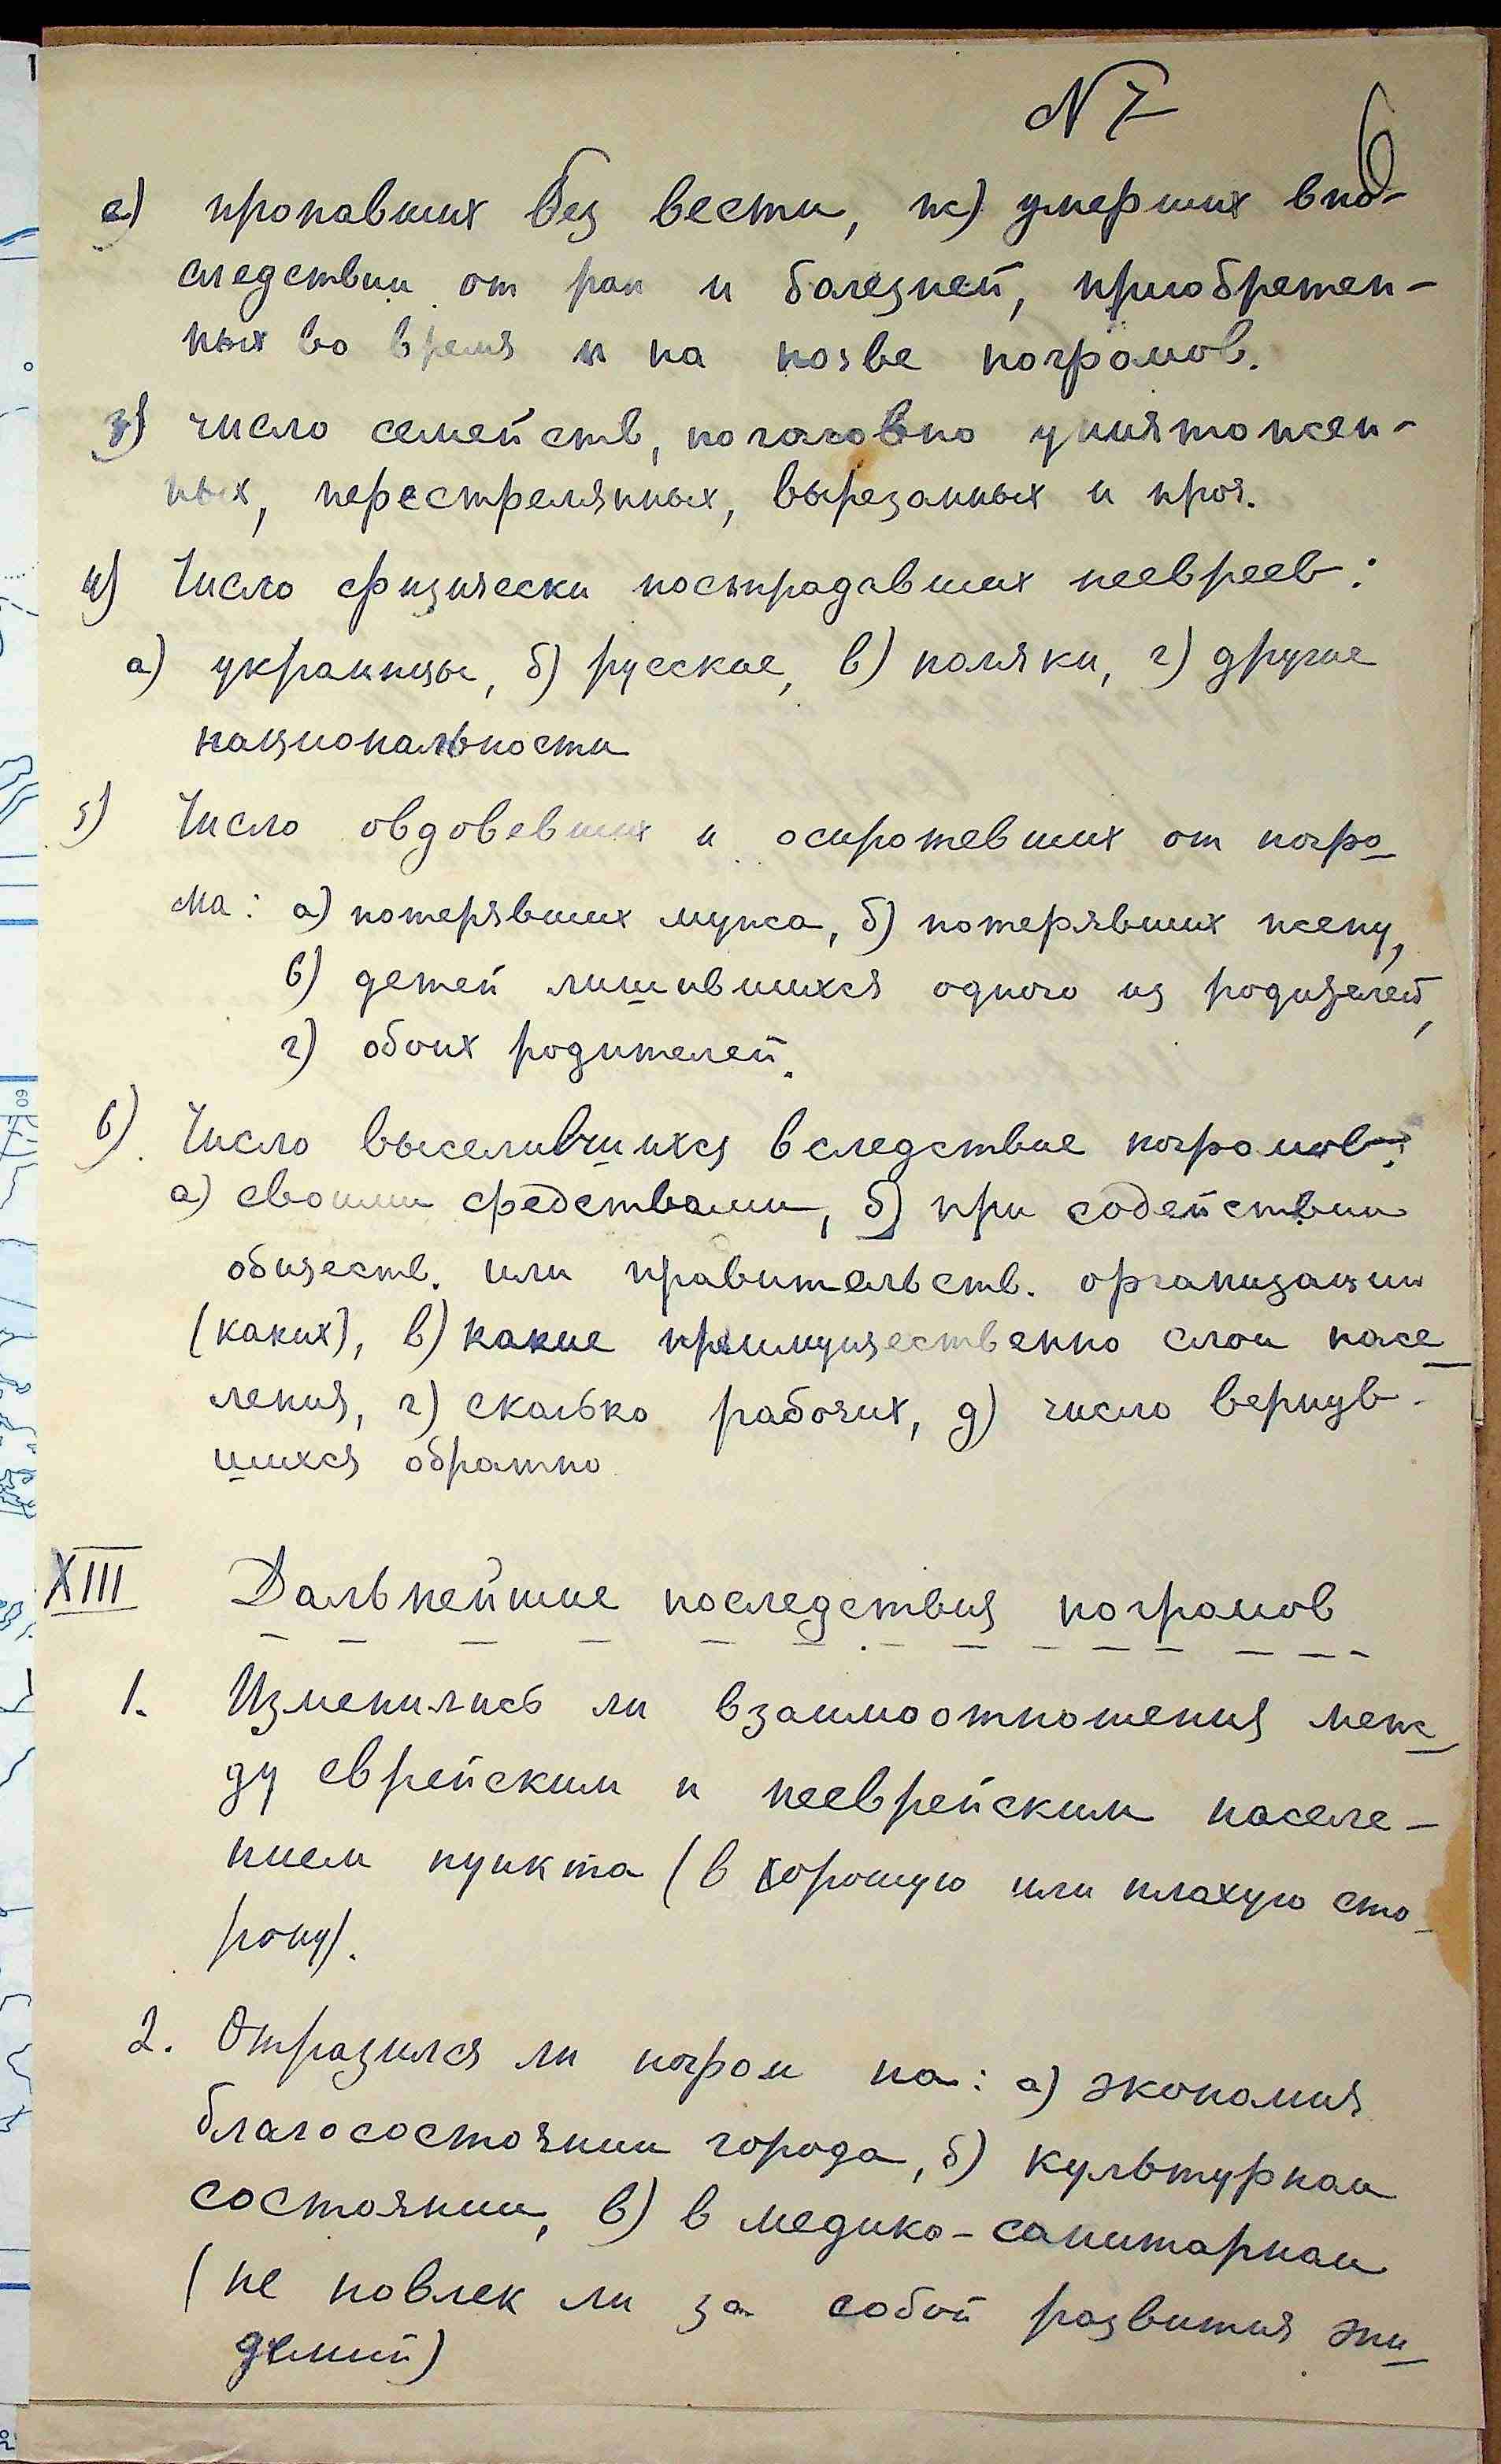 N 7
6
е) пропавших без вести, ж) умерших впо-
следствии от ран и болезней, приобретен-
ных во время и на почве погромов.
з) число семейств, поголовно уничтожен-
ных, перестрелянных, вырезанных и проч.
4) Число физически пострадавших неевреев:
а) украинцы, б) русские, в) поляки, г) другие
национальности
5) Число овдовевших и осиротевших от погро-
ма: а) потерявших мужа, б) потерявших жену,
в) детей лишившихся одного из родителей,
г) обоих родителей.
6) Число выселившихся вследствие погромов:
а) своими средствами, б) при содействии
обществ. или правительств. организации
(каких), в) какие преимущественно слои насе-
ления, г) сколько рабочих, д) число вернув-
шихся обратно
XIII Дальнейшие последствия погромов
1. Изменились ли взаимоотношения меж-
ду еврейским и нееврейским населе-
нием пункта (в хорошую или плохую сто-
рону).
2. Отразился ли погром на: а) экономич
благосостоянии города, б) культурном
состоянии, в) в медико-санитарном
(не повлек ли за собой развития эпи-
демий)